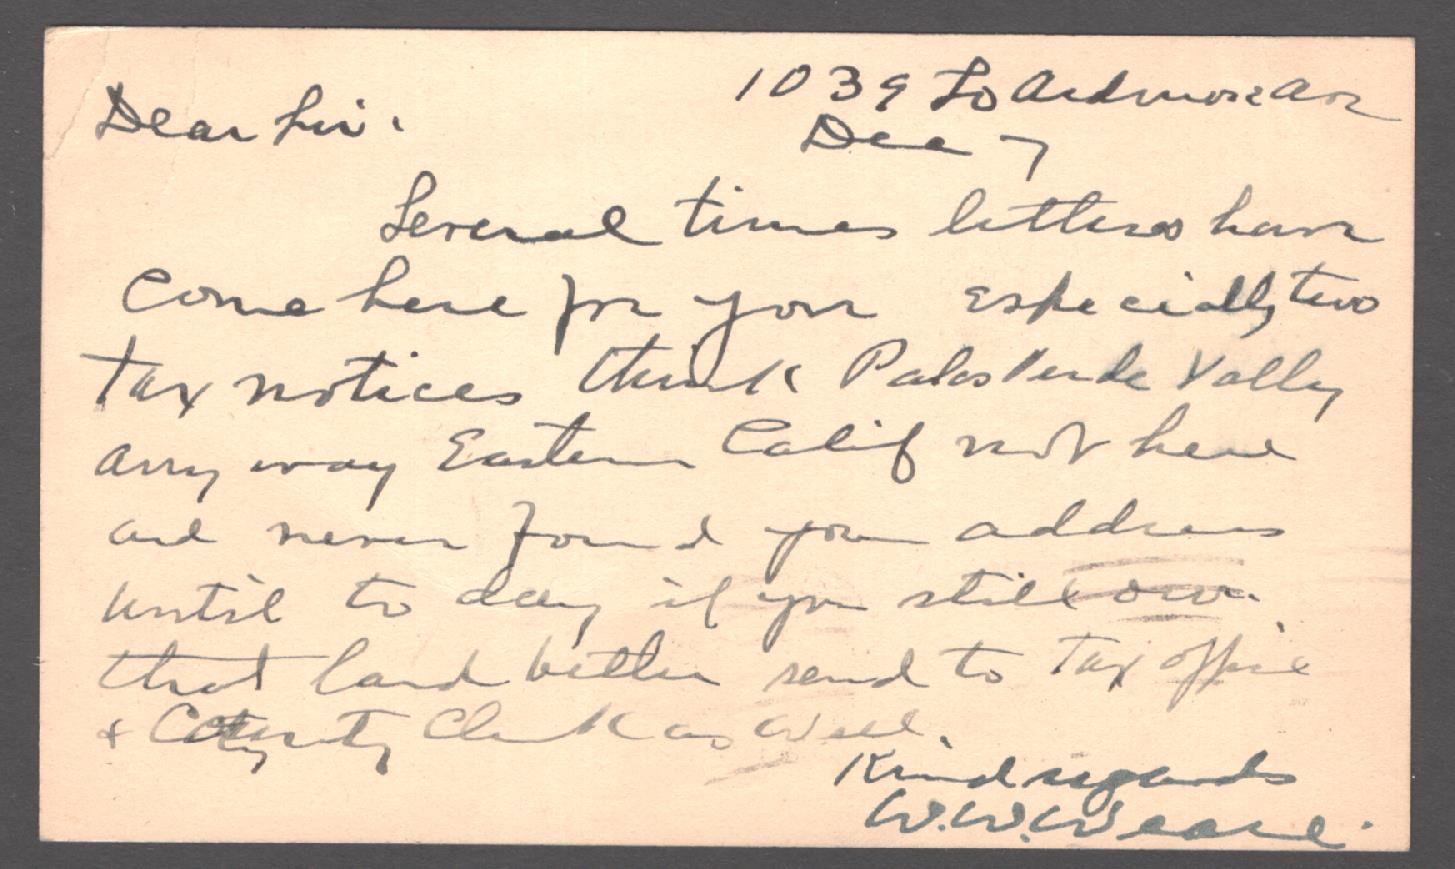 1039 So Ardmore Ave
Dec 7
Dear Sir.
Several times letters have
come here for you especially two
tax notices think Palos Verde Valley
any way Eastern Calif not here
and never found your address
until to day if you still own
that land better send to Tax office
& County Clerk as well.
Kind regards
W. W.